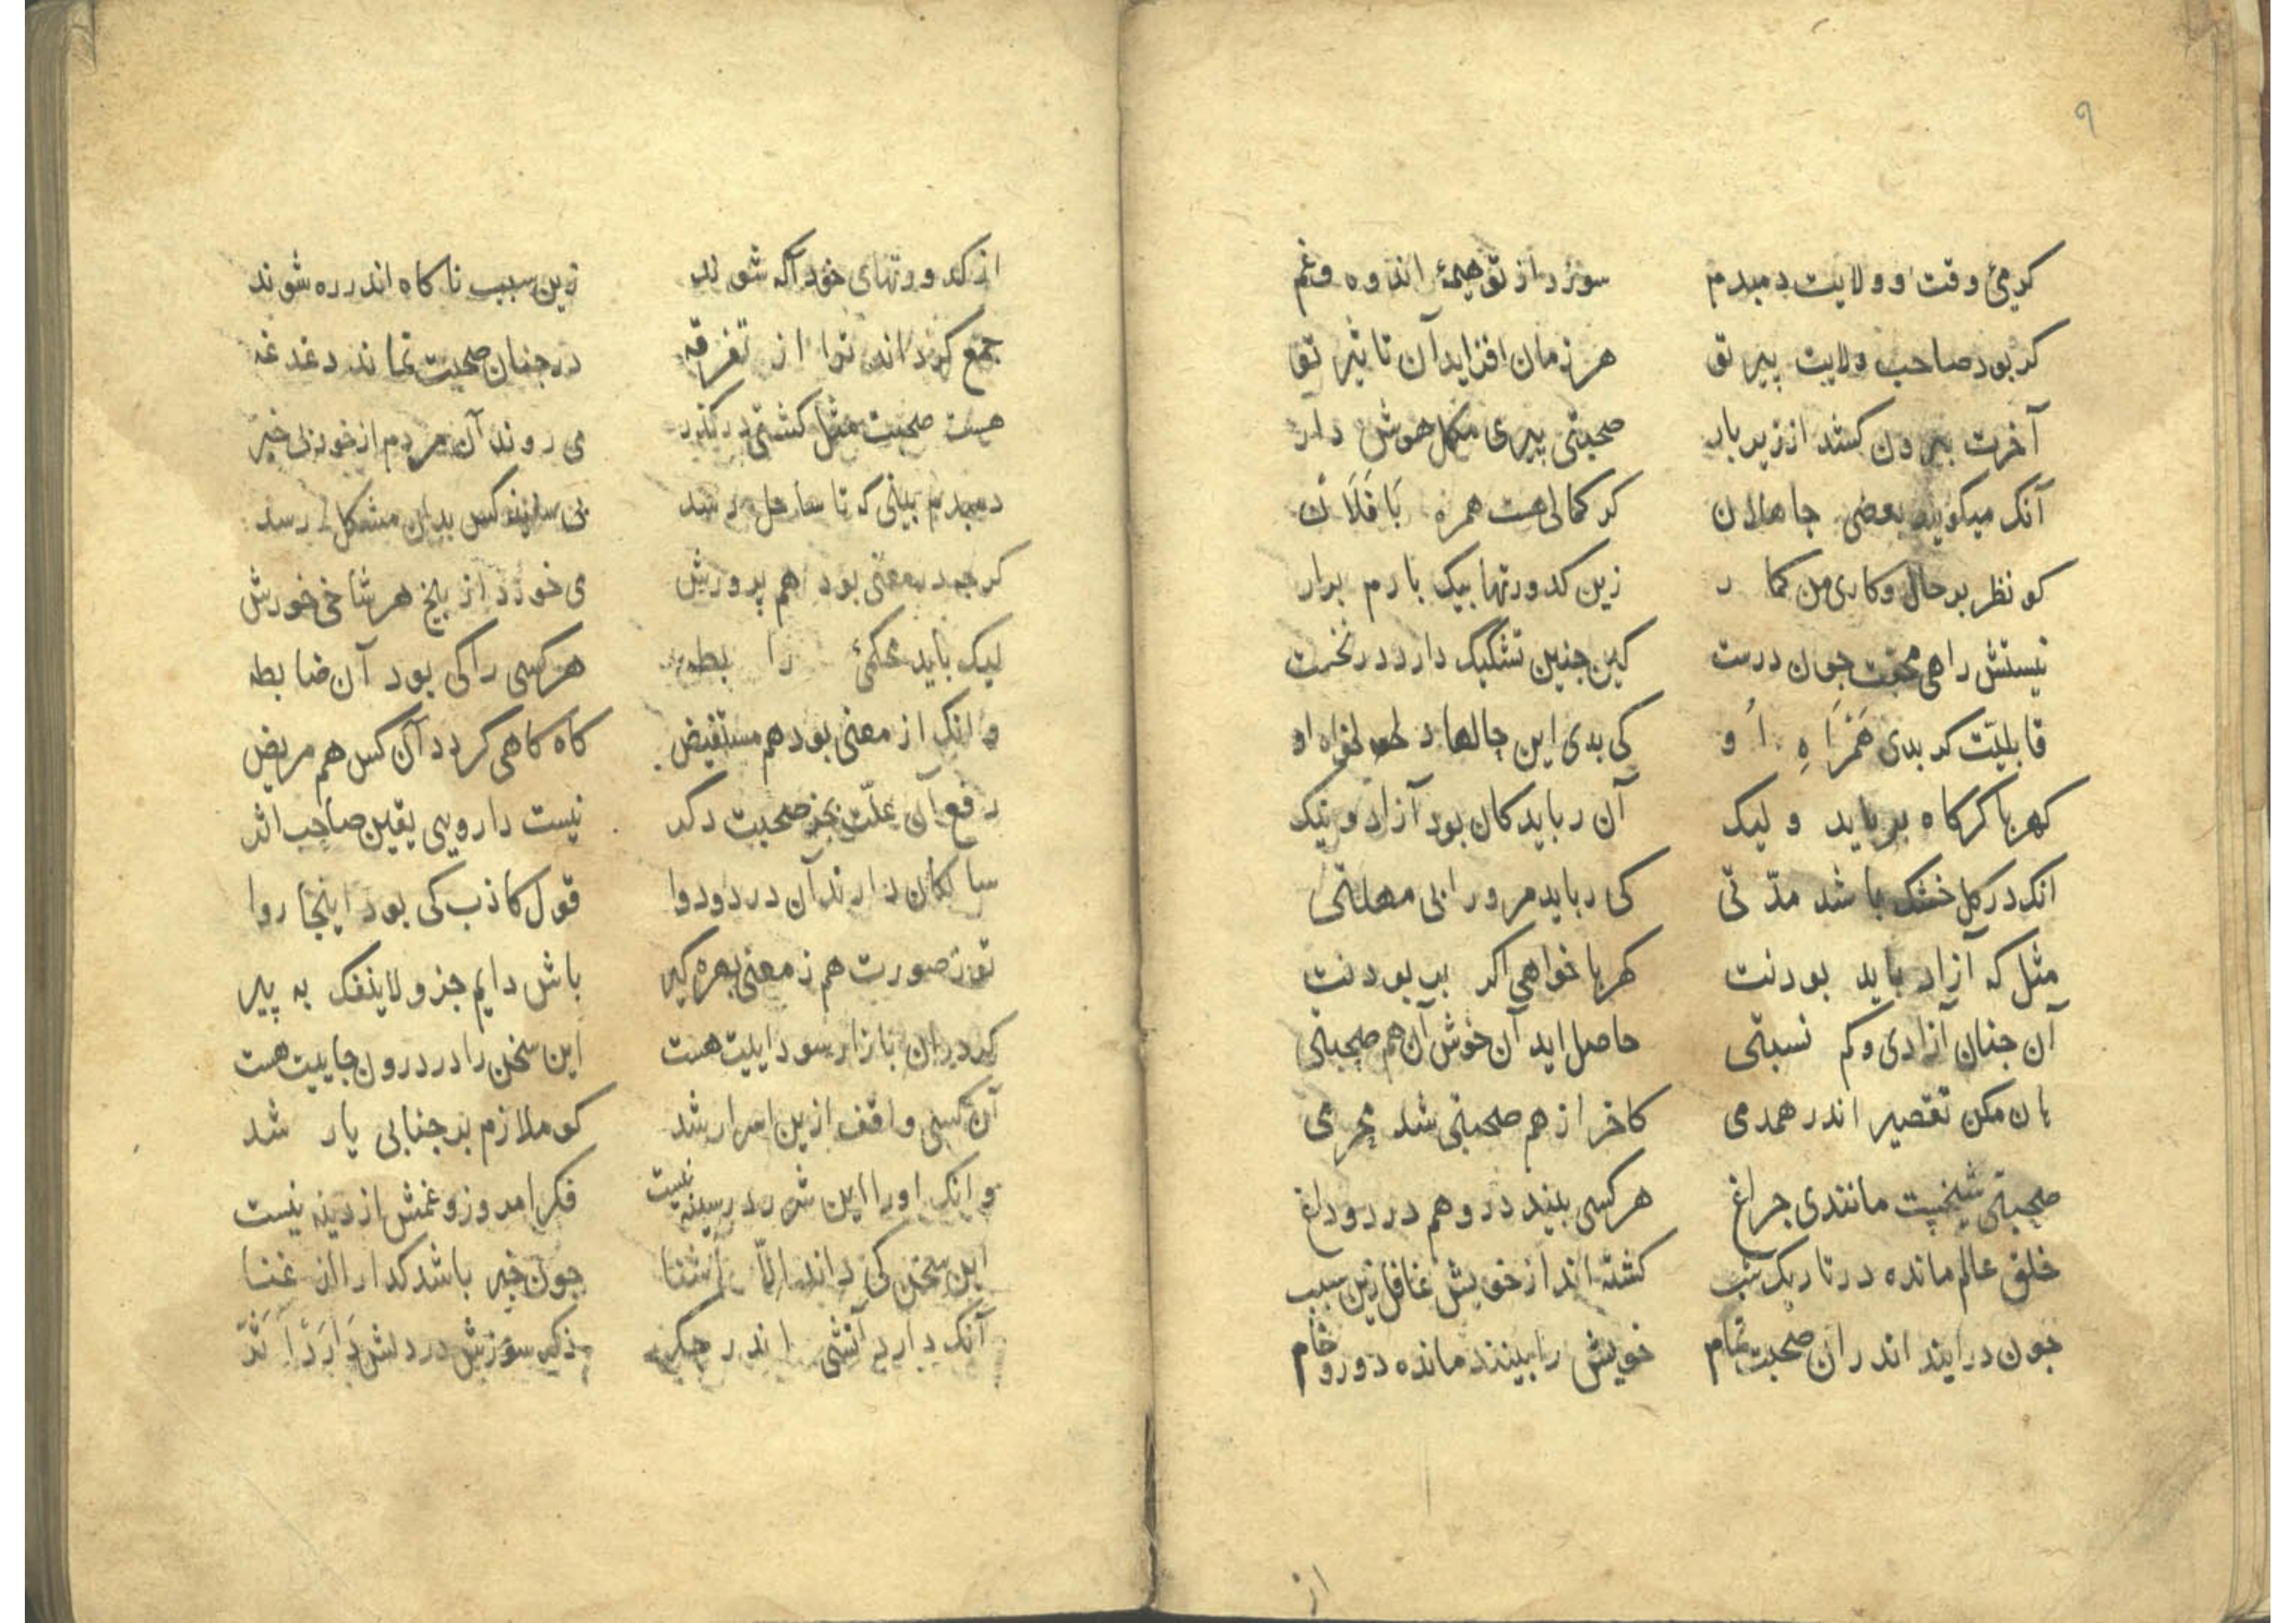 ۹
کرمیٔ وقت و ولایت دمبدم سوزد از تو هیمهٔ اندوه و غم
کر بود صاحب ولایت پیر تو هر زمان افزاید آن تاثیر تو
آخرت بیرون کشد از زیر بار صحبتی پیری مکمل هوش دار
آنک میکویند بعضی جاهلان کر کمالی هست همره با فلان
کو نظر بر حال و کاری من کمار زین کدورتها بیک بارم برار
نیستش راهی محبت جون درست کین جنین تشکیک دارد در نخست
قابلیت کر بدی همراه او کی بدی این حالها دلخواه او
کهربا کر کاه برباید ولیک آن رباید کان بود آزاد و نیک
انک در کل خشک باشد مدّتی کی رباید مرورا بی مهلتی
مثل که آزاد باید بودنت کهربا خواهی اکر بربودنت
آن جنان آزادی و کم نسبتی حاصل اید آن خوش آن هم صحبتی
هان مکن تقصیر اندر همدمی کاخر از هم صحبتی شد محرمی
صحبتی شیخیت مانندی جراغ هر کسی بیند درو هم درد و داغ
خلق عالم مانده در تاریک شب کشته اند از خویش غافل زین سبب
جون درایند اندران صحبت تمام خویش را بینند مانده دور و خام
از
از کدورتهای خود آکه شوند زین سبب ناکاه اندر ره شوند
جمع کرداند ترا از تفرقه در جنان صحبت نماند دغدغه
هست صحبت مثل کشتی در کذر می روند آن مردم از خود بی خبر
دمبدم بینی که تا ساحل رسد کس بدان مشکل رسد
کرجه در معنی بود هم پرورش می خورد از بیخ هر شاخی خورش
لیک باید محکمیٔ رابطه هر کسی را کی بود آن ضابطه
وانک از معنی بود هم مستفیض کاه کاهی کردد آن کس هم مریض
رفع آن علّت بجز صحبت دکر نیست دارویی یقین صاحب اثر
سالکان دارند آن درد و دوا قول کاذب کی بود اینجا روا
تو ز صورت هم ز معنی بهره کیر باش دایم جزو لاینفک به پیر
کر دران بازار سوداییت هست این سخن را در درون جاییت هست
آن کسی واقف ازین اسرار شد کو ملازم بر جنابی یار شد
وانک اورا این شرر در سینه نیست فکر امروز و غمش از دینه نیست
این سخن کی داند الّا آشنا جون خبر باشد کدا را از غنا
آنک دارد آتشی اندر جکر ذکر سوزش در دلش دارد اثر